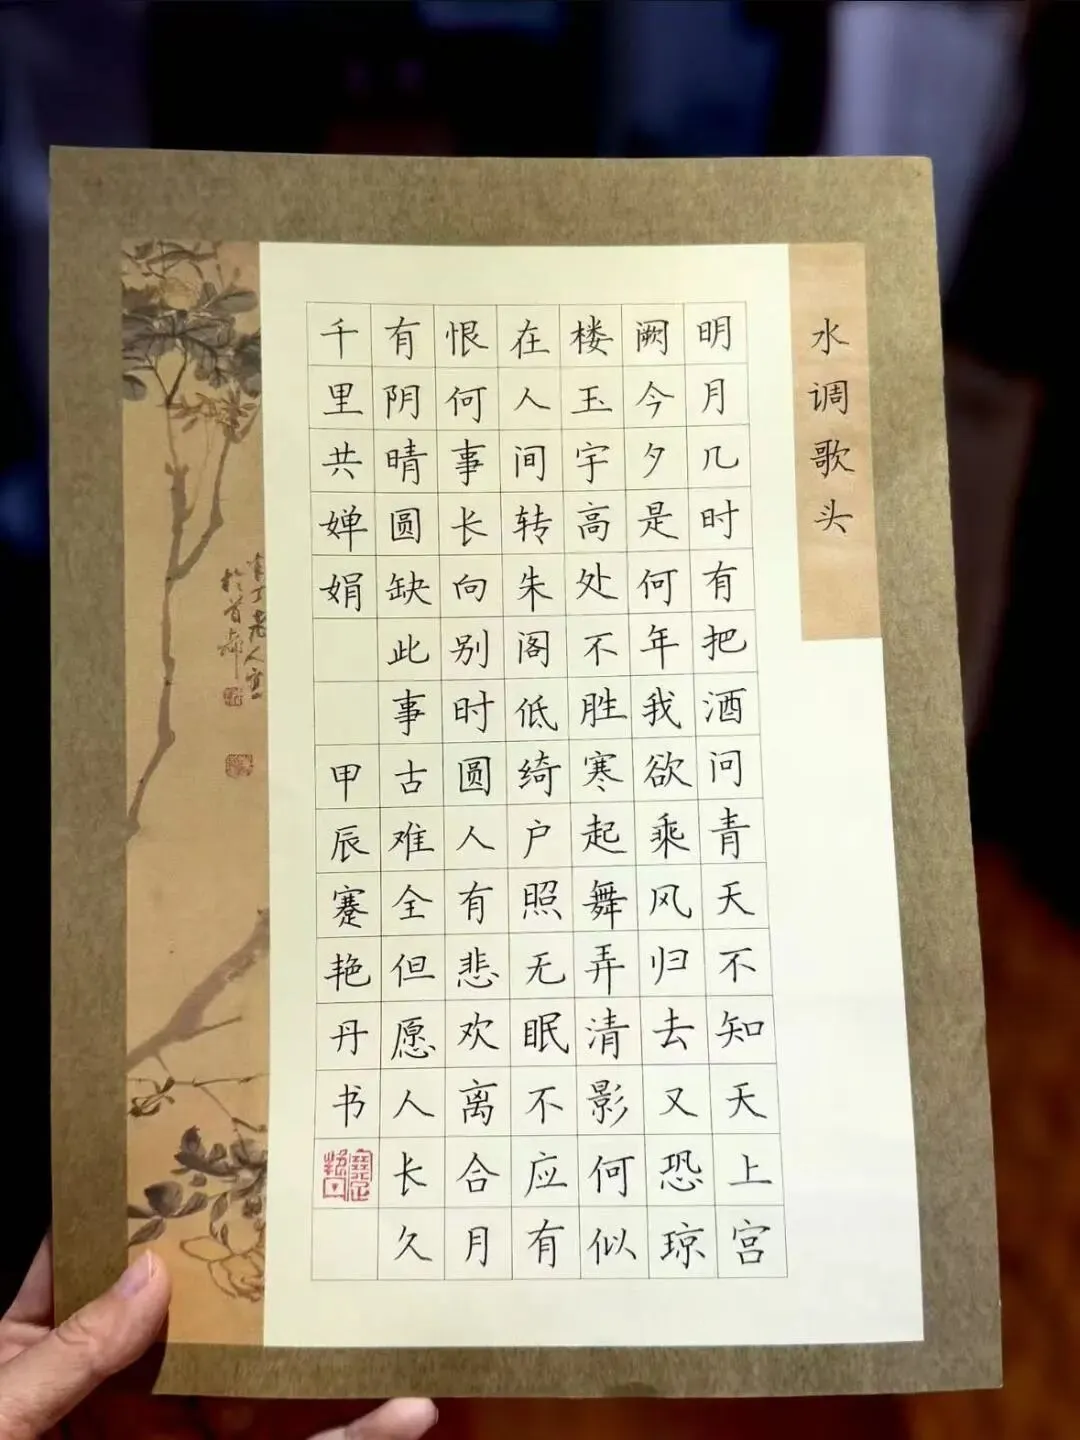 水调歌头
明月几时有把酒问青天不知天上宫
阙今夕是何年我欲乘风归去又恐琼
楼玉宇高处不胜寒起舞弄清影何似
在人间转朱阁低绮户照无眠不应有
恨何事长向别时圆人有悲欢离合月
有阴晴圆缺此事古难全但愿人长久
千里共婵娟 甲辰蹇艳丹书